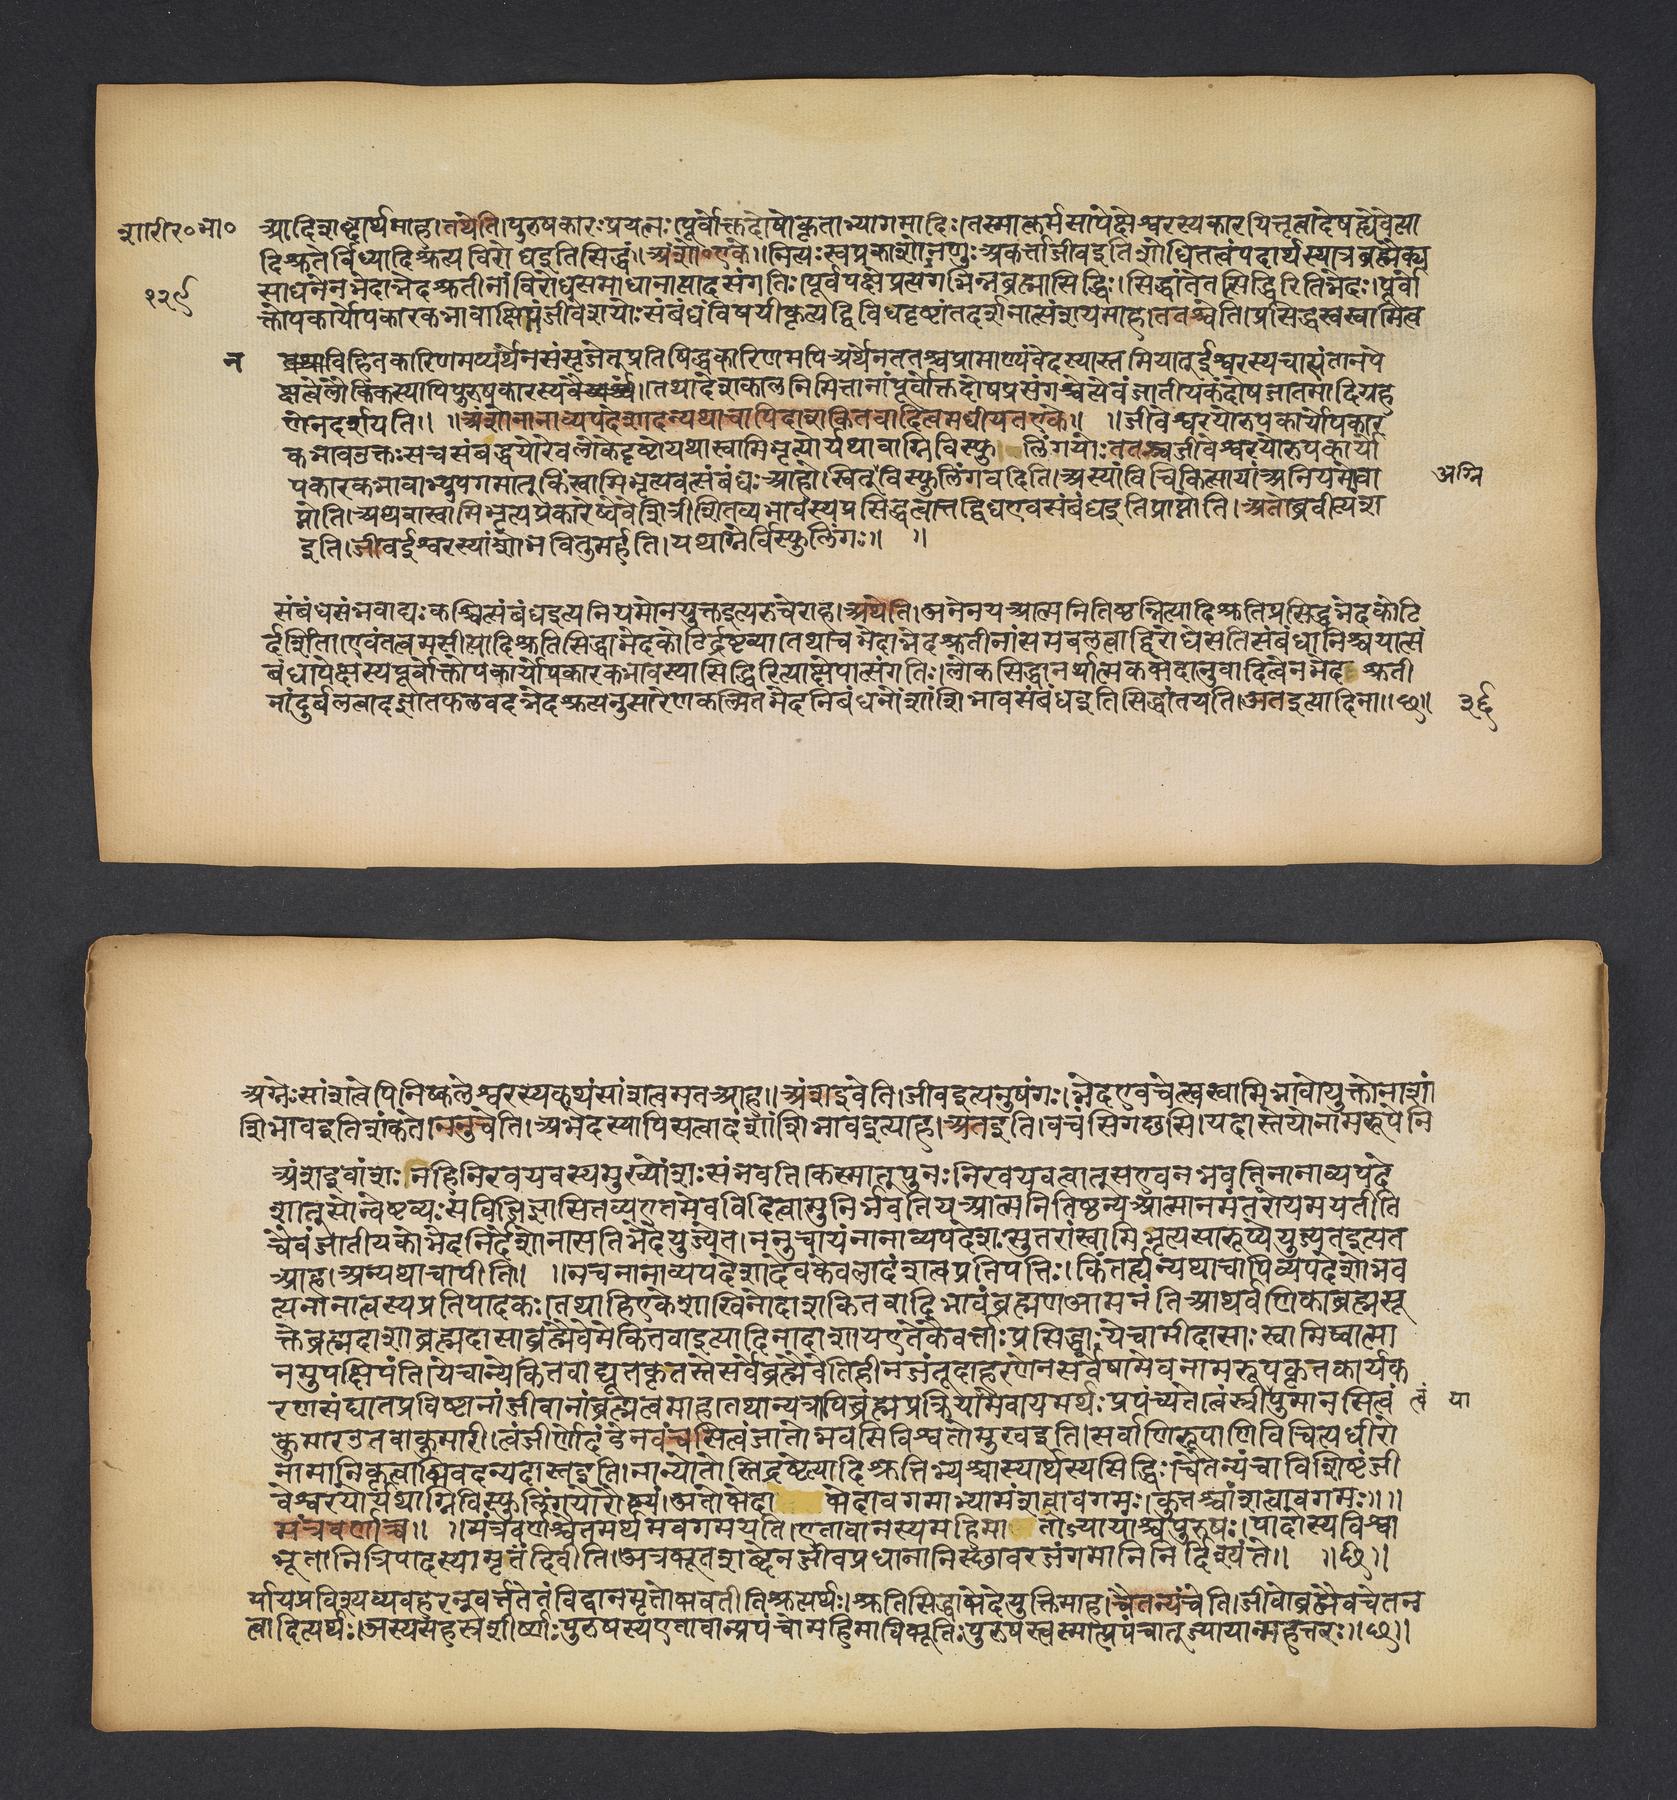 शारीर०भा० आदिशब्दार्थमाह।तथेति।पुरुषकारःप्रयत्नः।पूर्वोक्तदोषोकृताभ्यागमादिः।तस्मात्कर्मसापेक्षेश्वरस्यकारयितृत्वादेषह्येवेत्या
दिश्रुतेर्विध्यादिश्रुत्यविरोधइतिसिद्धं॥अंशो॰एके॥नित्यःस्वप्रकाशोनणुःअकर्त्ताजीवइतिशोधितत्वंपदार्थस्यात्रब्रह्मैक्य
१२९ साधनेनभेदाभेदश्रुतीनांविरोधसमाधानात्पादसंगतिः।पूर्वपक्षेप्रत्यगभिन्नब्रह्मासिद्धिः।सिद्धांतेतत्सिद्धिरितिभेदः।पूर्वो
क्तोपकार्योपकारकभावाक्षिप्तंजीवेशयोःसंबंधंविषयीकृत्यद्विविधदृष्टांतदर्शनात्संशयमाह।ततश्चेति।प्रसिद्धस्वस्वामित्व
न विहितकारिणमप्यर्थेनसंसृजेत्प्रतिषिद्धकारिणमपिअर्थेनततश्चप्रामाण्यंवेदस्यास्तमियात्ईश्वरस्यचात्यंतानपे
क्षत्वेलौकिकस्यापिपुरुषकारस्यवैयर्थ्यं॥तथादेशकालनिमित्तानांपूर्वोक्तदोषप्रसंगश्चेत्येवंजातीयकंदोषजातमादिग्रह
णेनदर्शयति॥ ॥अंशोनानाव्यपदेशादन्यथाचापिदाशकितवादित्वमधीयतएके॥ ॥जीवेश्वरयोरुपकार्योपकार
कभावउक्तःसचसंबद्धयोरेवलोकेदृष्टोयथास्वामिभृत्योर्यथावाग्निविस्फु लिंगयोःततश्चजीवेश्वरयोरुपकार्यो
पकारकभावाभ्युपगमात्किंस्वामिभृत्यवत्संबंधःआहोस्वित्विस्फुलिंगवदिति।अस्यांविचिकित्सायांअनियमोवा अग्नि
प्राप्नोति।अथवास्वामिभृत्यप्रकारेष्वेवेशित्रीशितव्यभावस्यप्रसिद्धत्वात्तद्विधएवसंबंधइतिप्राप्नोति।अतोब्रवीत्यंश
इति।जीवईश्वरस्यांशोभवितुमर्हति।यथाग्नेर्विस्फुलिंगः॥ ॥
संबंधसंभवाद्यःकश्चित्संबंधइत्यनियमोनयुक्तइत्यरुचेराह।अथेति।अनेनयआत्मनितिष्ठन्नित्यादिश्रुतिप्रसिद्धभेदकोटि
र्दर्शिता।एवंतत्वमसीत्यादिश्रुतिसिद्धाभेदकोटिर्द्रष्टव्या।तथाचभेदाभेदश्रुतीनांसमबलत्वाद्विरोधेसतिसंबंधानिश्चयात्सं
बंधापेक्षस्यपूर्वोक्तोपकार्योपकारकभावस्यासिद्धिरित्याक्षेपात्संगतिः।लोकसिद्धानर्थात्मकभेदानुवादित्वेनभेद श्रुती
नांदुर्बलत्वादज्ञातफलवदभेदश्रुत्यनुसारेणकल्पितभेदनिबंधनोंशांशिभावसंबंधइतिसिद्धांतयति।अतइत्यादिना॥छ॥ ३६
अग्नेःसांशत्वेपिनिष्कलेश्वरस्यकथंसांशत्वमतआह॥अंशइवेति।जीवइत्यनुषंगः।भेदएवचेत्स्वस्वामिभावोयुक्तोनांशां
शिभावइतिशंकते।ननुचेति।अभेदस्यापिसत्वादंशांशिभावइत्याह।अतइति।वचंसिगछसि।यदास्तेयोनामरूपेनि
अंशइवांशःनहिनिरवयवस्यमुख्योंशःसंभवति।कस्मात्पुनःनिरवयवत्वात्सएवनभवतिनानाव्यपदे
शात्सोन्वेष्टव्यःसविजिज्ञासितव्यएतमेवविदित्वामुनिर्भवतियआत्मनितिष्ठन्यआत्मानमंतरोयमयतीति
चैवंजातीयकोभेदनिर्देशोनासतिभेदेयुज्येत।ननुचायंनानाव्यपदेशःसुतरांस्वामिभृत्यसारूप्येयुज्यतइत्यत
आह।अन्यथाचापीति॥ ॥नचनानाव्यपदेशादेवकेवलादंशत्वप्रतिपत्तिः।किंतर्ह्यन्यथाचापिव्यपदेशोभव
त्यनानात्वस्यप्रतिपादकः।तथाहिएकेशाखिनोदाशकितवादिभावंब्रह्मणआमनंतिआथर्वणिकाब्रह्मसू
क्तेब्रह्मदाशाब्रह्मदासाब्रह्मैवेमेकितवाइत्यादिनादाशायएतेकैवर्त्ताःप्रसिद्धाःयेचामीदासाःस्वामिष्वात्मा
नमुपक्षिपंति।येचान्येकितवाद्यूतकृतस्तेसर्वेब्रह्मैवेतिहीनजंतूदाहरणेनसर्वेषामेवनामरूपकृतकार्यक
रणसंघातप्रविष्टानांजीवानांब्रह्मत्वमाह।तथान्यत्रापिब्रह्मप्रक्रियामेवायमर्थःप्रपंच्यते।त्वंस्त्रीपुमानसित्वं त्वं या
कुमारउतवाकुमारी।त्वंजीर्णोदंडेनवंचसित्वंजातोभवसिविश्वतोमुखइति।सर्वाणिरूपाणिविचित्यधीरो
नामानिकृत्वाभिवदन्यदास्तइति।नान्योतोस्तिद्रष्टेत्यादिश्रुतिभ्यश्चास्यार्थस्यसिद्धिः।चैतन्यंचाविशिष्टंजी
वेश्वरयोर्यथाग्निविस्फुलिंगयोरौष्ण्यं।अतोभेदा भेदावगमाभ्यामंशत्वावगमः।कुतश्चांशत्वावगमः॥॥
मंत्रवर्णाच्च॥ ॥मंत्रवर्णश्चैतमर्थमवगमयति।एतावानस्यमहिमा तोज्यायांश्चपुरुषः।पादोस्यविश्वा
भूतानित्रिपादस्यामृतंदिवीति।अत्रभूतशब्देनजीवप्रधानानिस्थावरजंगमानिनिर्दिश्यंते॥ ॥छ॥
र्मायप्रविश्यव्यवहरन्नुवर्त्ततेतंविद्वानमृतोभवतीतिश्रुत्यर्थः।श्रुतिसिद्धाभेदेयुक्तिमाह।चैतन्यंचेति।जीवोब्रह्मैवचेतन
त्वादित्यर्थः।अस्यसहस्रशीर्ष्णःपुरुषस्यएतावान्प्रपंचोमहिमाविभूतिःपुरुषस्त्वस्मात्प्रपंचात्ज्यायान्महत्तरः॥छ॥